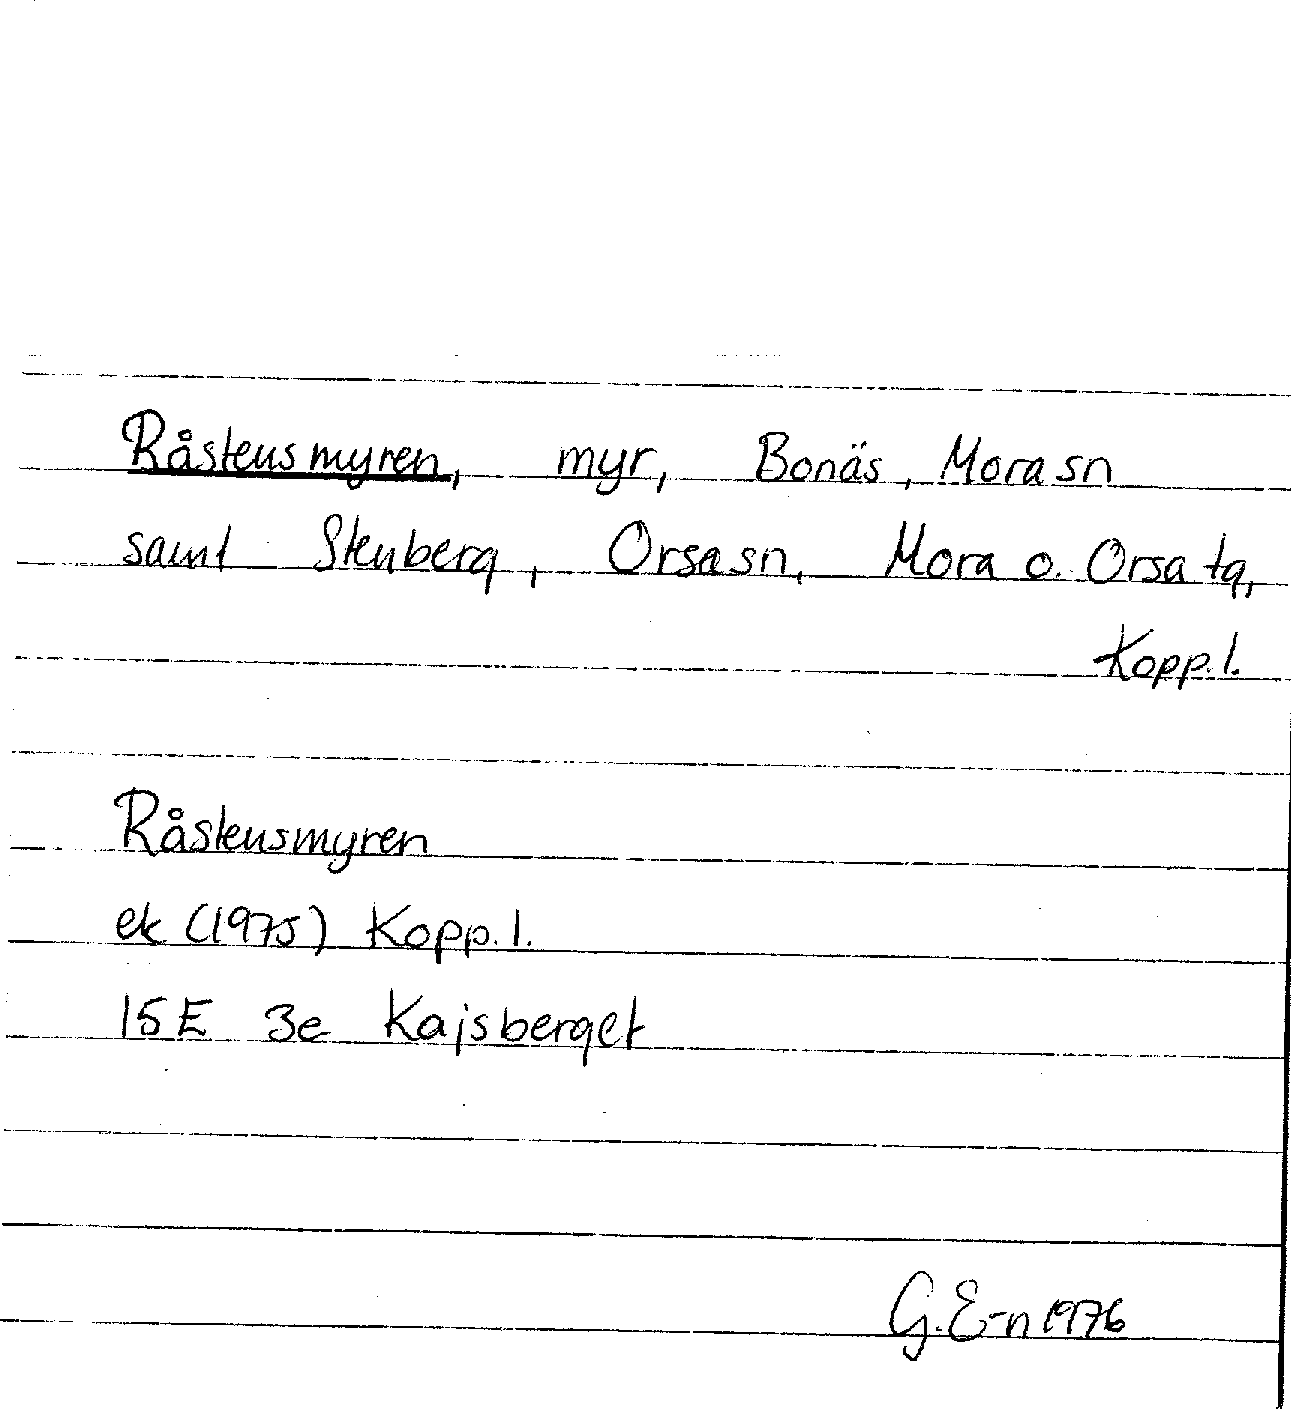 Råstensmyren, myr, Bonäs, Mora sn
samt Stenberg, Orsa sn, Mora o. Orsa tg,
Kopp. l.
Råstensmyren
ek (1975) Kopp. l.
15E 3e Kajsberget
G. E-n 1976